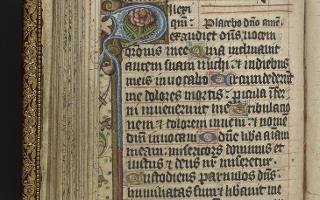 ilexi
qm̄: Placebo dn̄o añe.
exaudiet dn̄s uocem
orōnis mee Quia inclinauit
aurem suam michi: et in diebus
meis inuocabo Circumdederūt
me dolores mortis: pīcula īfer
ni inuenerunt me Tribulacio
nem et dolorem inueni: et nomē
dn̄i inuocaui O dn̄e lib̄a aīam
meam: misericors dominus et
iustus et deus nr̄ miseretur
Custodiens paruulos dn̄s:
humiliatus sum et libauit me